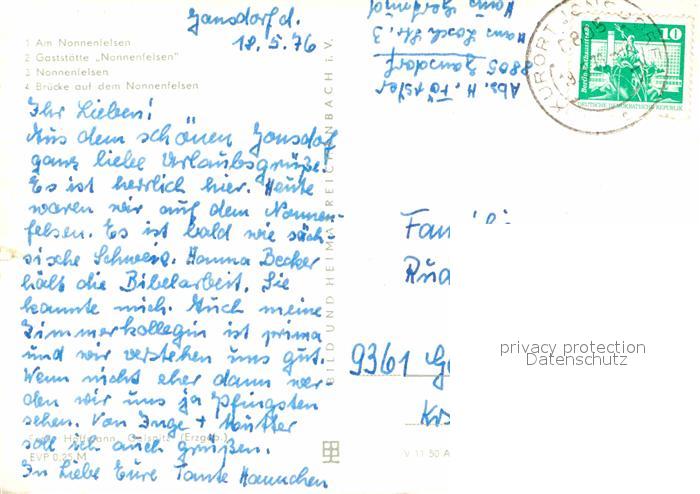 Jonsdorf d.
12.5.76
1 Am Nonnenfelsen
2 Gaststätte „Nonnenfelsen"
3 Nonnenfelsen
4 Brücke auf dem Nonnenfelsen
Ihr Lieben!
Aus dem schönen Jonsdorf
ganz liebe Urlaubsgrüße.
Es ist herrlich hier. Heute
waren wir auf dem Nonnen-
felsen. Es ist bald wie säch-
sische Schweiz. Hanna Becker
hält die Bibelarbeit. Sie
kannte mich. Auch meine
Zimmerkollegin ist prima
und wir verstehen uns gut.
Wenn nicht eher dann wer-
den wir uns ja Pfingsten
sehen. Von Inge + Mutter
soll ich auch grüßen.
In Liebe Eure Tante Hannchen
(Erzgeb.)
EVP 0,25 M
BILD UND HEIMAT REICHENBACH I. V.
V 11 50 A
Abs. H. Förster
8805 Jonsdorf
Hans
Str. 3
Haus
KURORT JONSDORF
10
DEUTSCHE DEMOKRATISCHE REPUBLIK
Fam
Rud
9361
privacy protection
Datenschutz